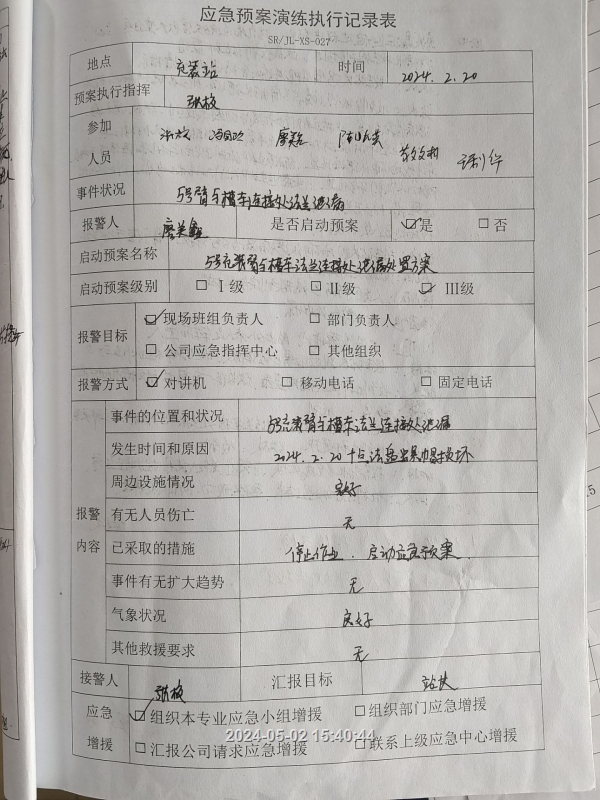 应急预案演练执行记录表
SR/JL-XS-027
地点 充装站 时间 2024.2.20
预案执行指挥
参加
人员
事件状况 5号臂与槽车连接处法兰泄漏
报警人 是否启动预案 ☑是 □否
启动预案名称 5号充装臂与槽车法兰连接处泄漏处置方案
启动预案级别 □Ⅰ级 □Ⅱ级 ☑Ⅲ级
报警目标 ☑现场班组负责人 □部门负责人
□公司应急指挥中心 □其他组织
报警方式 ☑对讲机 □移动电话 □固定电话
报警内容
事件的位置和状况 5号充装臂与槽车法兰连接处泄漏
发生时间和原因 2024.2.20十点法兰 损坏
周边设施情况 良好
有无人员伤亡 无
已采取的措施 停止作业、启动应急预案
事件有无扩大趋势 无
气象状况 良好
其他救援要求 无
接警人 汇报目标 站长
应急增援
☑组织本专业应急小组增援 □组织部门应急增援
□汇报公司请求应急增援 □联系上级应急中心增援
2024-05-02 15:40:44